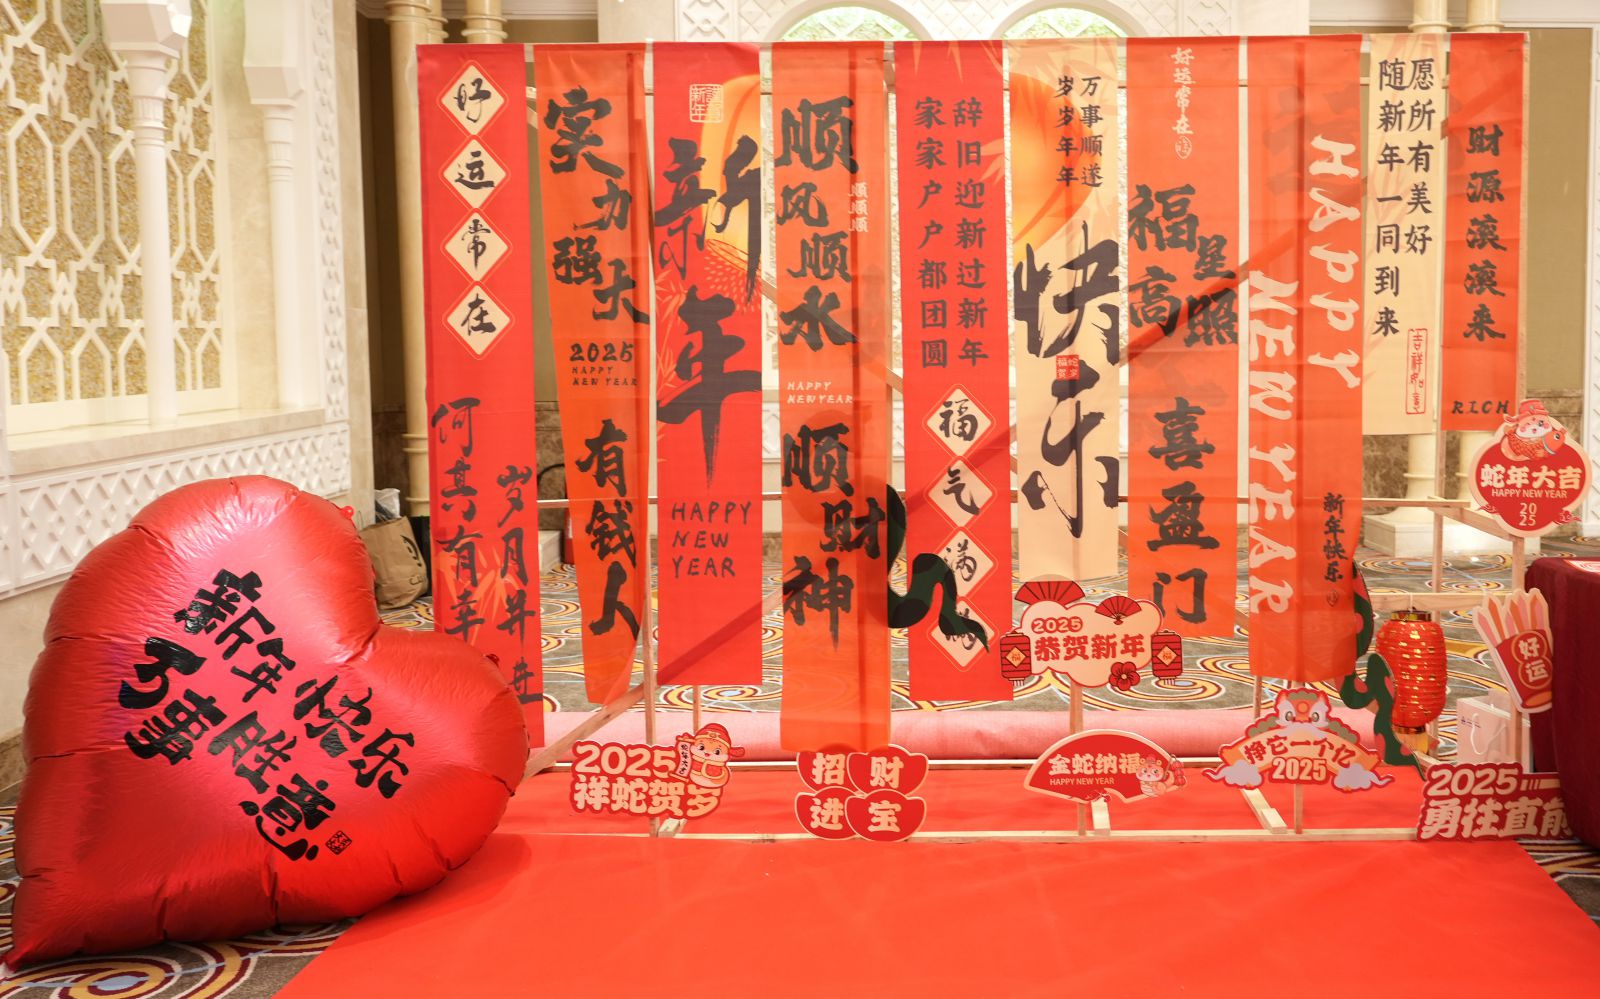 好运常在
何其有幸
岁月并进
实力强大
2025
HAPPY
NEW YEAR
有钱人
新年
HAPPY
NEW
YEAR
顺风顺水
顺顺顺
HAPPY
NEW YEAR
顺财神
辞旧迎新过新年
家家户户都团圆
福气满满
万事顺遂
岁岁年年
快乐
好运常在
福星高照
喜盈门
HAPPY
NEW YEAR
新年快乐
愿所有美好
随新年一同到来
吉祥如意
财源滚滚来
RICH
蛇年大吉
HAPPY NEW YEAR
20
25
好运
2025
恭贺新年
福
福
新年快乐
万事胜意
2025
祥蛇贺岁
招财
进宝
金蛇纳福
HAPPY NEW YEAR
挣它一个亿
2025
2025
勇往直前